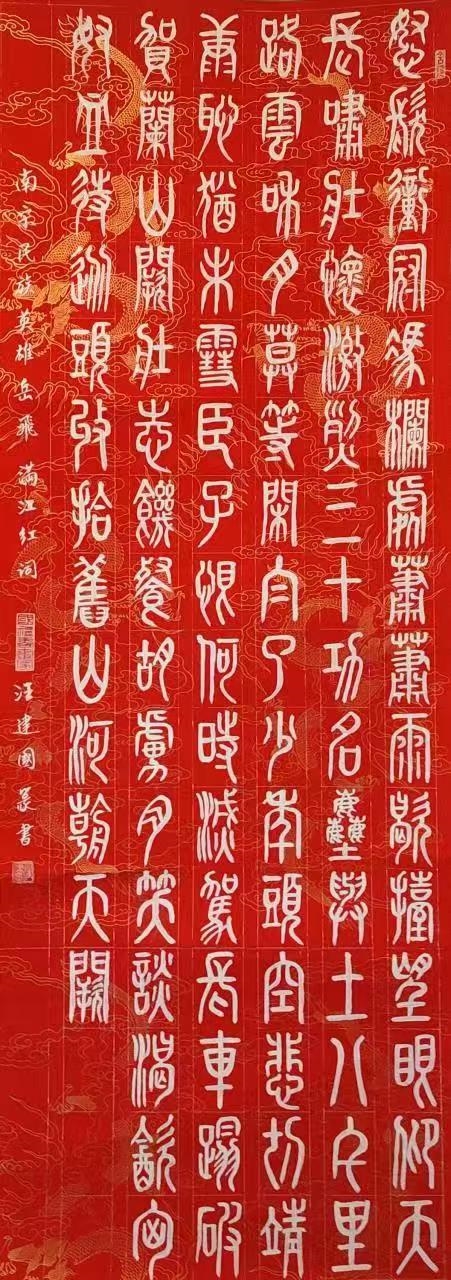 怒髮衝冠憑欄處蕭蕭雨歇擡望眼仰天
長嘯壯懷激烈三十功名塵與土八千里
路雲和月莫等閑白了少年頭空悲切靖
康恥猶未雪臣子恨何時滅駕長車踏破
賀蘭山闕壯志饑餐胡虜肉笑談渴飲匈
奴血待從頭收拾舊山河朝天闕
南宋民族英雄岳飛 滿江紅詞 汪建國篆書